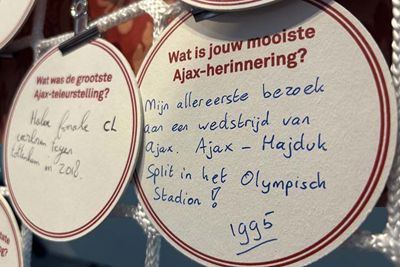 Wat was de grootste
Ajax-teleurstelling?
Halve finale CL
verliezen tegen
Tottenham in 2018.
Wat is jouw mooiste
Ajax-herinnering?
Mijn allereerste bezoek
aan een wedstrijd van
Ajax. Ajax – Hajduk
Split in het Olympisch
Stadion!
1995